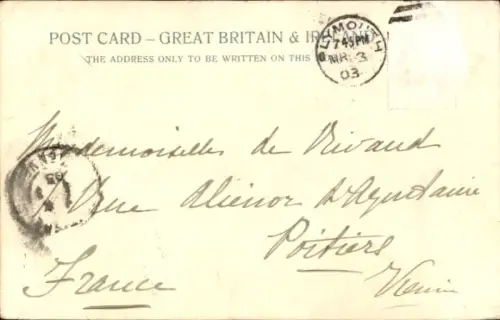 POST CARD – GREAT BRITAIN & IRELAND
THE ADDRESS ONLY TO BE WRITTEN ON THIS
PLYMOUTH
7 45 PM
MR 3
03
Mesdemoiselles de Vivaud
Rue Aliénor d'Aquitaine
Poitiers
France
Vienne
03